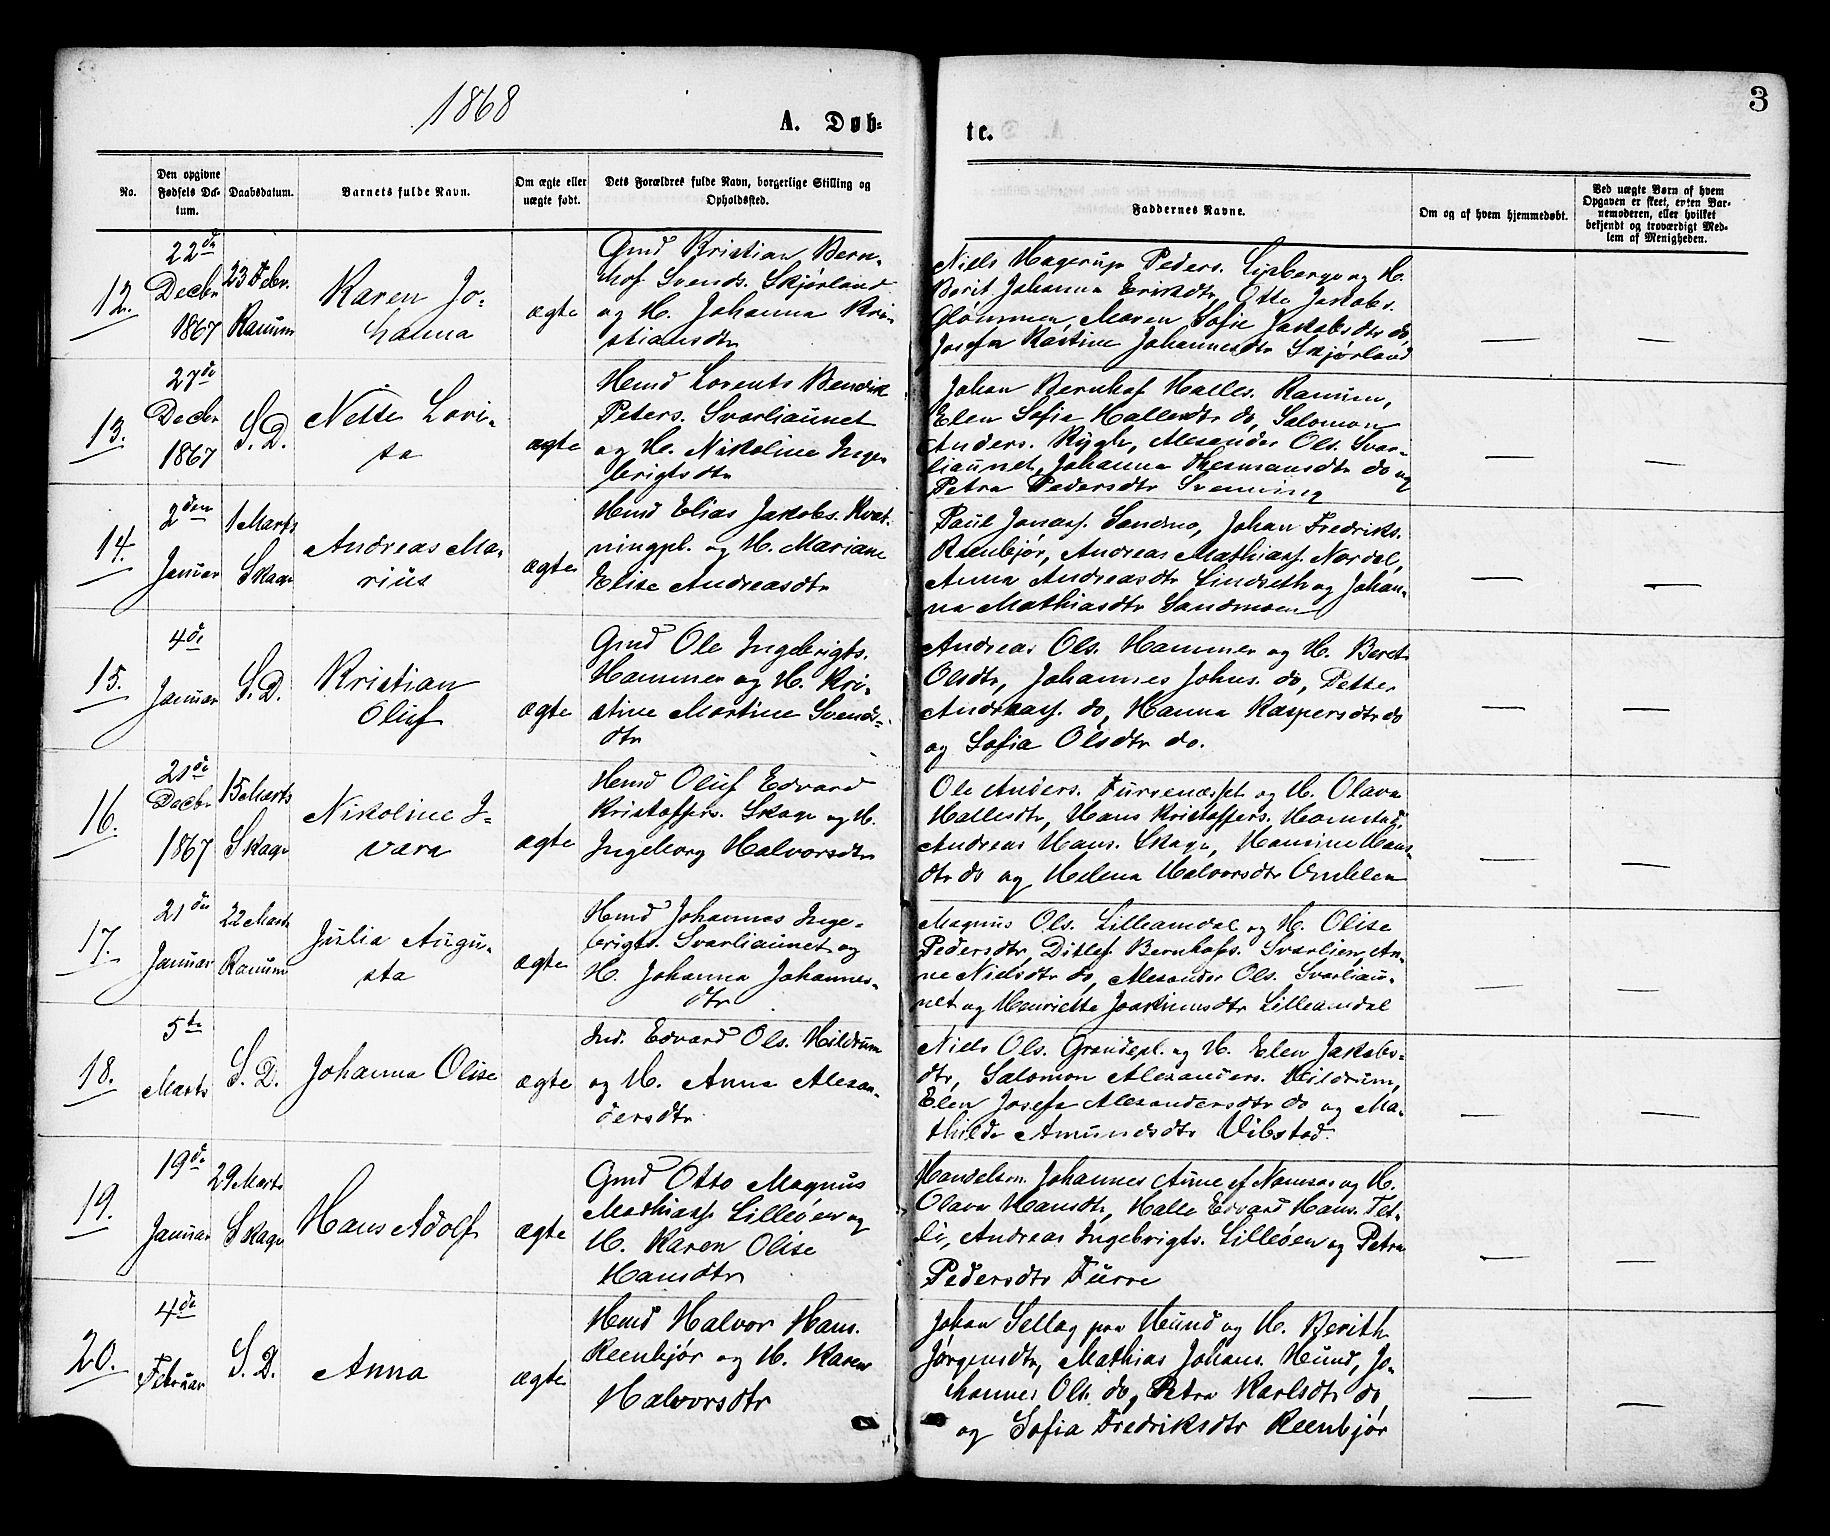 1868
A. Døb-
te.
3
No.
Den opgivne Fødsels Datum.
Daabsdatum.
Barnets fulde Navn.
Om ægte eller uægte født.
Dets Forældres fulde Navn, borgerlige Stilling og Opholdssted.
Faddernes Navne.
Om og af hvem hjemmedøbt.
Ved uægte Børn af hvem Opgaven er skeet, enten Barnemoderen, eller hvilket bekjendt og troværdigt Medlem af Menigheden.
12.
22de
Decbr
1867
23 Febr.
Ranum
Karen Jo-
hanna
ægte
Gmd Kristian Bern-
hof Svends. Skjørland
og H. Johanna Kri-
stiansdtr
Niels Hagerup Peders. og H.
Berit Johanna Eriksdtr, Otto Jakobs.
Glømmen, Maren Sofie Jakobsdtr do,
Josefa Kastine Johannesdtr Skjørland
—
—
13.
27de
Decbr
1867
S. D.
Nette Lovi-
sa
ægte
Hmd Lorents Bendik
Peters. Svarliaunet
og H. Nikoline Inge-
brigtsdtr
Johan Bernhof Halles. Ranum,
Elen Sofia Hallesdtr do, Salomon
Anders. Rygh, Alexander Ols. Svar-
liaunet, Johanna Thomasdtr do og
Petra Pedersdtr Svenning
—
—
14.
2den
Januar
1 Marts
Skage
Andreas Ma-
rius
ægte
Hmd Elias Jakobs. Kvat-
ningpl. og H. Mariane
Elise Andreasdtr
Paul Jonass. Sandmo, Johan Fredriks.
Reenbjør, Andreas Mathiass. Nordal,
Anna Andreasdtr Lindseth og Johan-
na Mathiasdtr Sandmoen
—
—
15.
4de
Januar
S. D.
Kristian
Oluf
ægte
Gmd Ole Ingebrigts.
Hammer og H. Kri-
stine Martine Svends-
dtr
Andreas Ols. Hammer og H. Beret
Olsdtr, Johannes Johns. do, Petter
Andreass. do, Hanna Kaspersdtr do
og Sofia Olsdtr do.
—
—
16.
21de
Decbr
1867
15 Marts
Skage
Nikoline I-
vara
ægte
Hmd Oluf Edvard
Kristoffers. Skage og H.
Ingeborg Halvorsdtr
Ole Anders. Furrenæspl. og H. Olava
Hallesdtr, Hans Kristoffers. Homstad,
Andreas Hans. Skage, Hansine Hans-
dtr do og Helena Halvorsdtr Omblen
—
—
17.
21de
Januar
22 Marts
Ranum
Julia Augu-
sta
ægte
Hmd Johannes Inge-
brigts. Svarliaunet og
H. Johanna Johannes-
dtr
Magnus Ols. Lilleamdal og H. Olise
Pedersdtr, Ditlef Bernhofs. Svarlien, An-
ne Nielsdtr do, Alexander Ols. Svarliau-
net og Henriette Joakimsdtr Lilleamdal
—
—
18.
5te
Marts
S. D.
Johanna Olise
ægte
Ind. Edvard Ols. Hildrum
og H. Anna Alexan-
dersdtr
Niels Ols. Grandepl. og H. Elen Jakobs-
dtr, Salomon Alexanders. Hildrum,
Elen Josefa Alexandersdtr do og Ma-
thilde Amundsdtr Vibstad.
—
—
19.
19de
Januar
29 Marts
Skage
Hans Adolf
ægte
Gmd Otto Magnus
Mathiass. Lilleøen og
H. Karen Olise
Hansdtr
Handelsm. Johannes Aune af Namsos og H.
Olava Hansdtr, Halle Edvard Hans. Fet-
li, Andreas Ingebrigts. Lilleøen og Petra
Pedersdtr Furre
—
—
20.
4de
Februar
S. D.
Anna
ægte
Hmd Halvor Hans.
Reenbjør og H. Karen
Halvorsdtr
Johan Sellæg paa Hund og H. Berith
Jørgensdtr, Mathias Johans. Hund, Jo-
hannes Ols. do, Petra Karlsdtr do
og Sofia Fredriksdtr Reenbjør
—
—